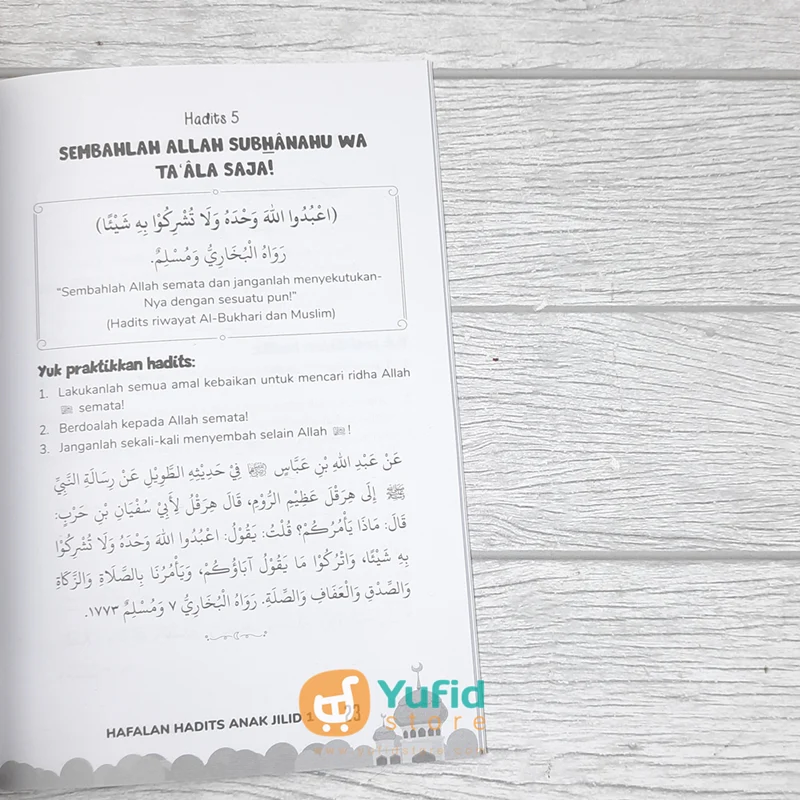 Hadits 5
SEMBAHLAH ALLAH SUBHÂNAHU WA
TA'ÂLA SAJA!
(اعْبُدُوا اللهَ وَحْدَهُ وَلَا تُشْرِكُوْا بِهِ شَيْئًا)
رَوَاهُ الْبُخَارِيُّ وَمُسْلِمٌ.
"Sembahlah Allah semata dan janganlah menyekutukan-
Nya dengan sesuatu pun!"
(Hadits riwayat Al-Bukhari dan Muslim)
Yuk praktikkan hadits:
1. Lakukanlah semua amal kebaikan untuk mencari ridha Allah
ﷻ semata!
2. Berdoalah kepada Allah semata!
3. Janganlah sekali-kali menyembah selain Allah ﷻ!
عَنْ عَبْدِ اللهِ بْنِ عَبَّاسٍ فِيْ حَدِيْثِهِ الطَّوِيْلِ عَنْ رِسَالَةِ النَّبِيِّ
ﷺ إِلَى هِرَقْلَ عَظِيْمِ الرُّوْمِ، قَالَ هِرَقْلُ لِأَبِيْ سُفْيَانَ بْنِ حَرْبٍ:
قَالَ: مَاذَا يَأْمُرُكُمْ؟ قُلْتُ: يَقُوْلُ: اعْبُدُوا اللهَ وَحْدَهُ وَلَا تُشْرِكُوْا
بِهِ شَيْئًا، وَاتْرُكُوْا مَا يَقُوْلُ آبَاؤُكُمْ، وَيَأْمُرُنَا بِالصَّلَاةِ وَالزَّكَاةِ
وَالصِّدْقِ وَالْعَفَافِ وَالصِّلَةِ. رَوَاهُ الْبُخَارِيُّ ٧ وَمُسْلِمٌ ١٧٧٣.
HAFALAN HADITS ANAK JILID 1 23
Yufid
store